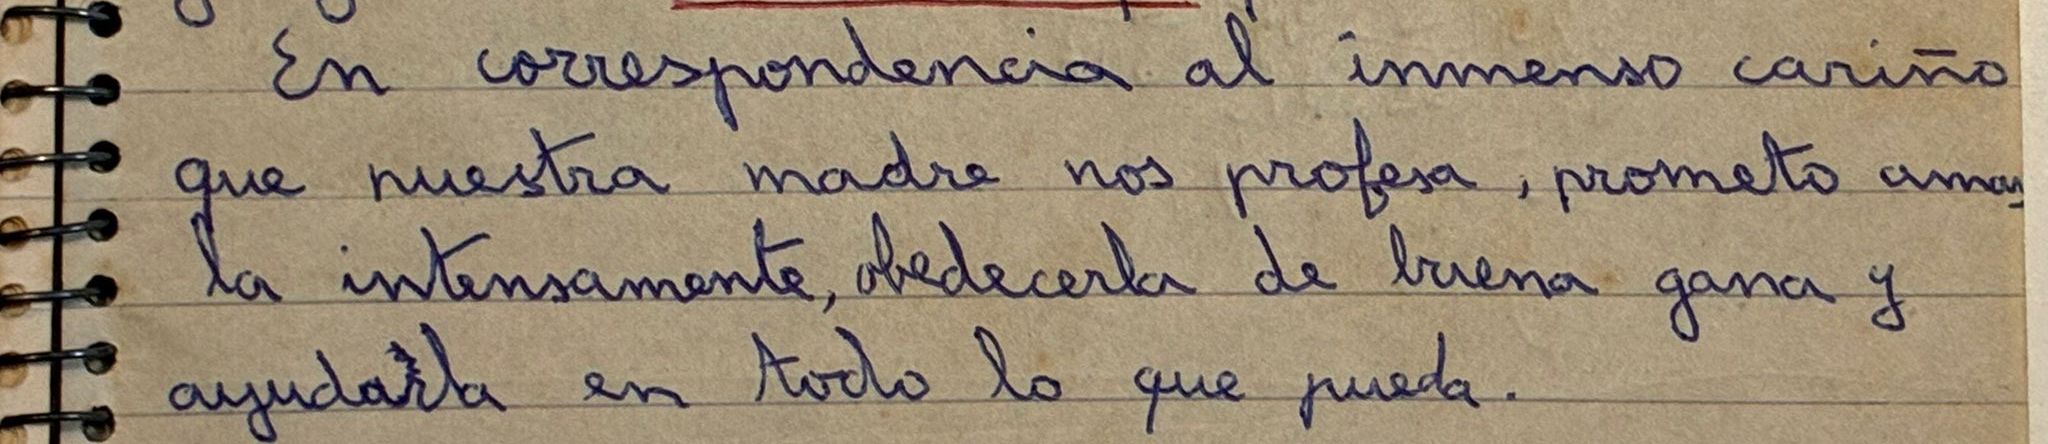 En correspondencia al inmenso cariño
que nuestra madre nos profesa, prometo amar
la intensamente, obedecerla de buena gana y
ayudarla en todo lo que pueda.